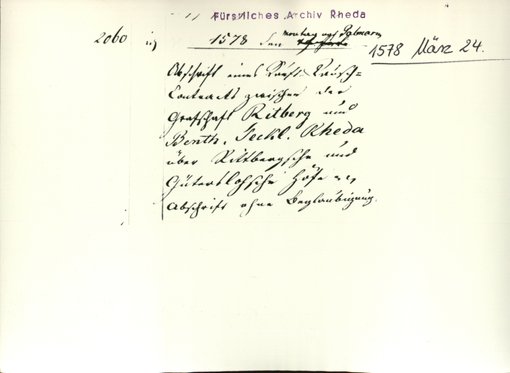 Fürstliches Archiv Rheda
2060
1578 den montag nach Palmarum
1578 März 24.
Abschrift eines Kauf-Tausch=
Contracts zwischen der
Grafschaft Ritberg und
Benth. Teckl. Rheda
über Rittbergsche und
Güterslohsche Höfe
Abschrift ohne Beglaubigung.